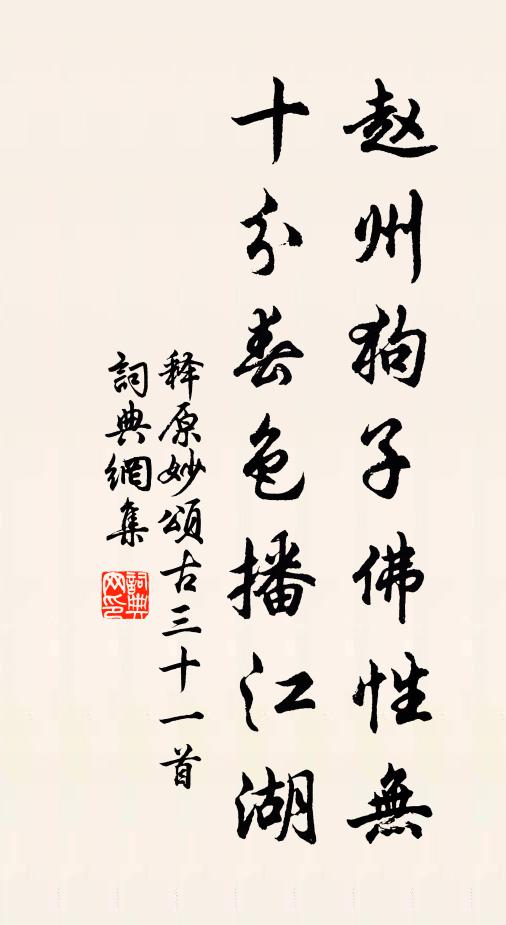 赵州狗子佛性無
十分春色播江湖
释原妙頌古三十一首
詞典網集
詞典网印